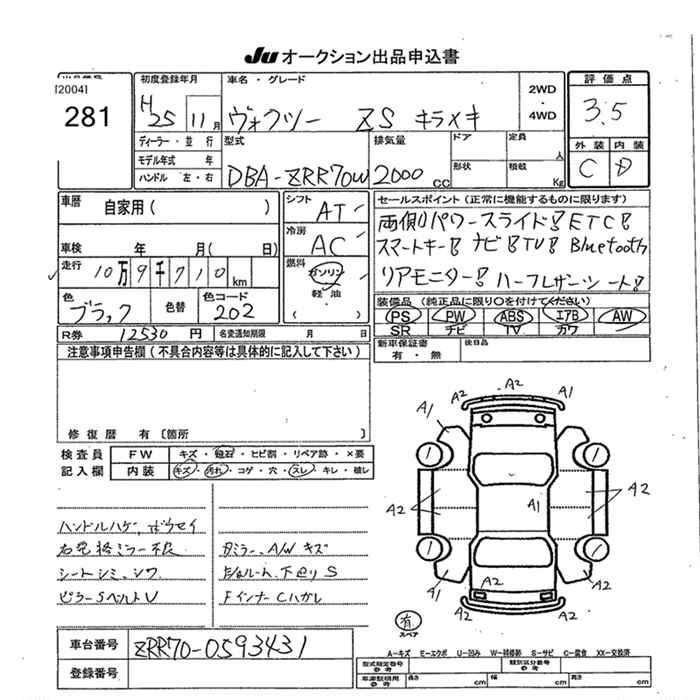 Ju オークション出品申込書
[2004]
281
初度登録年月
H25 11月
車名・グレード
ヴォクシー ZS キラメキ
2WD・4WD
評価点
3.5
外装 内装
C D
ディーラー・並行
モデル年式 年
ハンドル 左・右
型式
DBA-ZRR70W
排気量
2000 CC
ドア
定員 人
形状
積載 Kg
車歴 自家用( )
シフト AT
冷房 AC
燃料 ガソリン・軽油・( )
車検 年 月( 日)
走行 10万9千710km
色 ブラック
色替
色コード 202
セールスポイント(正常に機能するものに限ります)
両側パワースライド! ETC!
スマートキー! ナビ! TV! Bluetooth
リアモニター! ハーフレザーシート!
装備品(純正品に限り○を付けてください)
PS PW ABS エアB AW
SR ナビ TV カワ
新車保証書 有・無
後日品
R券 12530円
名変通知期限 月 日
注意事項申告欄(不具合内容等は具体的に記入して下さい)
修復歴 有〔箇所
検査員記入欄
FW キズ・飛石・ヒビ割・リペア跡・×要
内装 キズ・汚れ・コゲ・穴・スレ・キレ・破レ
ハンドルハゲ、
シートシミ、シワ
ピラーSベルトU
ミラー、A/Wキズ
下廻りS
FインナーCハガレ
車台番号 ZRR70-0593431
登録番号
A2
A2 A1
A1
A2
A1
A2
A1
A1
A2
A2
有
スペア
A-キズ E-エクボ U-凹み W-補修跡 S-サビ C-腐食 XX-交換済
型式指定番号 参考
類別区分番号 参考
車庫証明用 参考 長さ cm 幅 cm 高さ cm